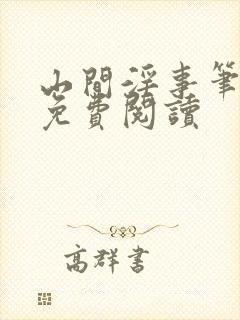 山間淫事筆
免費閱讀
高群書